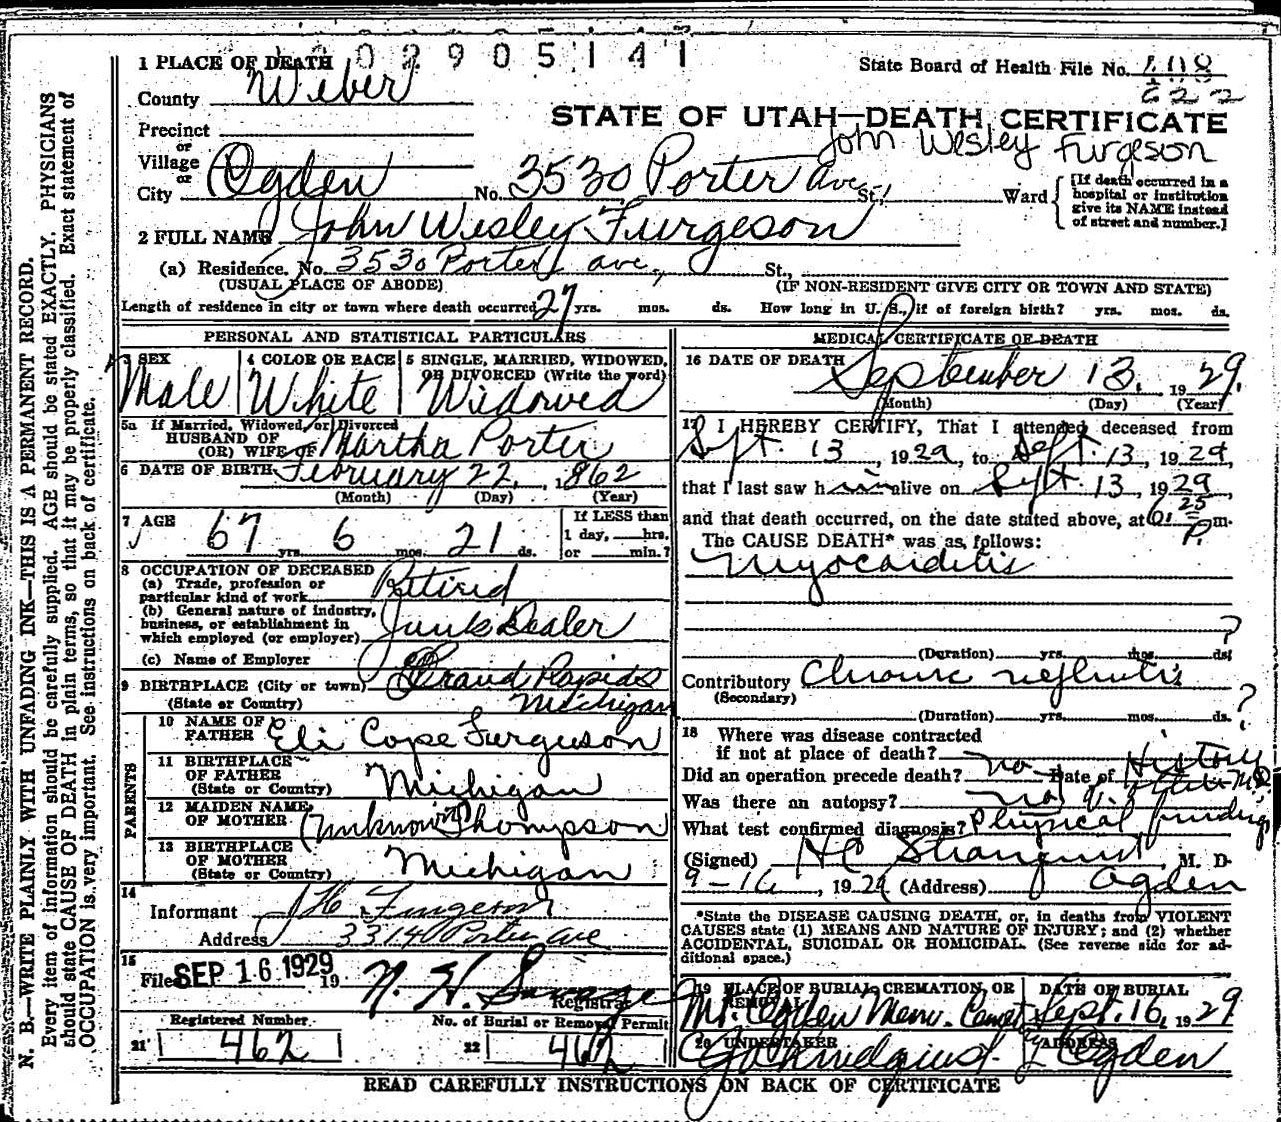 1 0 0 2 9 0 5 1 4 1
1 PLACE OF DEATH
State Board of Health File No.
622
County Weber
STATE OF UTAH—DEATH CERTIFICATE
Precinct
John Wesley Furgeson
or
Village
or
City Ogden No. 3530 Porter ave St. Ward
[If death occurred in a hospital or institution give its NAME instead of street and number.]
2 FULL NAME John Wesley Furgeson
(a) Residence. No. 3530 Porter ave., St.,
(USUAL PLACE OF ABODE) (IF NON-RESIDENT GIVE CITY OR TOWN AND STATE)
Length of residence in city or town where death occurred 27 yrs. mos. ds. How long in U. S., if of foreign birth? yrs. mos. ds.
PERSONAL AND STATISTICAL PARTICULARS
3 SEX Male
4 COLOR OR RACE White
5 SINGLE, MARRIED, WIDOWED, OR DIVORCED (Write the word) Widowed
5a If Married, Widowed, or Divorced
HUSBAND OF
(OR) WIFE OF Martha Porter
6 DATE OF BIRTH February 22, 1862
(Month) (Day) (Year)
7 AGE 67 yrs. 6 mos. 21 ds.
If LESS than
1 day, hrs.
or min.?
8 OCCUPATION OF DECEASED
(a) Trade, profession or
particular kind of work Retired
(b) General nature of industry,
business, or establishment in
which employed (or employer) Junk Dealer
(c) Name of Employer
9 BIRTHPLACE (City or town) Grand Rapids
(State or Country) Michigan
PARENTS
10 NAME OF
FATHER Eli Cope Furguson
11 BIRTHPLACE
OF FATHER
(State or Country) Michigan
12 MAIDEN NAME
OF MOTHER (Unknown) Thompson
13 BIRTHPLACE
OF MOTHER
(State or Country) Michigan
14
Informant Furgeson
Address 3314 Porter Ave
15
Filed SEP 16 1929 19 N. H. Savage
Registrar
Registered Number
21 462
No. of Burial or Removal Permit
22 462
MEDICAL CERTIFICATE OF DEATH
16 DATE OF DEATH September 13, 1929.
(Month) (Day) (Year)
17 I HEREBY CERTIFY, That I attended deceased from
Sept. 13, 1929, to Sept. 13, 1929,
that I last saw him alive on Sept. 13, 1929
and that death occurred, on the date stated above, at 6:25 P. m.
The CAUSE DEATH* was as follows:
Myocarditis
?
(Duration) yrs. mos. ds.
Contributory Chronic nephritis
(Secondary)
?
(Duration) yrs. mos. ds.
18 Where was disease contracted
if not at place of death?
Did an operation precede death? no Date of History
Was there an autopsy? no
What test confirmed diagnosis? Physical findings
(Signed) M. D.
9-16, 1929 (Address) Ogden
*State the DISEASE CAUSING DEATH, or, in deaths from VIOLENT
CAUSES state (1) MEANS AND NATURE OF INJURY; and (2) whether
ACCIDENTAL, SUICIDAL OR HOMICIDAL. (See reverse side for ad-
ditional space.)
19 PLACE OF BURIAL, CREMATION, OR REMOVAL Mt. Ogden Mem. Cemet
DATE OF BURIAL Sept. 16, 1929
20 UNDERTAKER
ADDRESS Ogden
READ CAREFULLY INSTRUCTIONS ON BACK OF CERTIFICATE
N. B.—WRITE PLAINLY WITH UNFADING INK—THIS IS A PERMANENT RECORD.
Every item of information should be carefully supplied. AGE should be stated EXACTLY. PHYSICIANS
should state CAUSE OF DEATH in plain terms, so that it may be properly classified. Exact statement of
OCCUPATION is very important. See instructions on back of certificate.